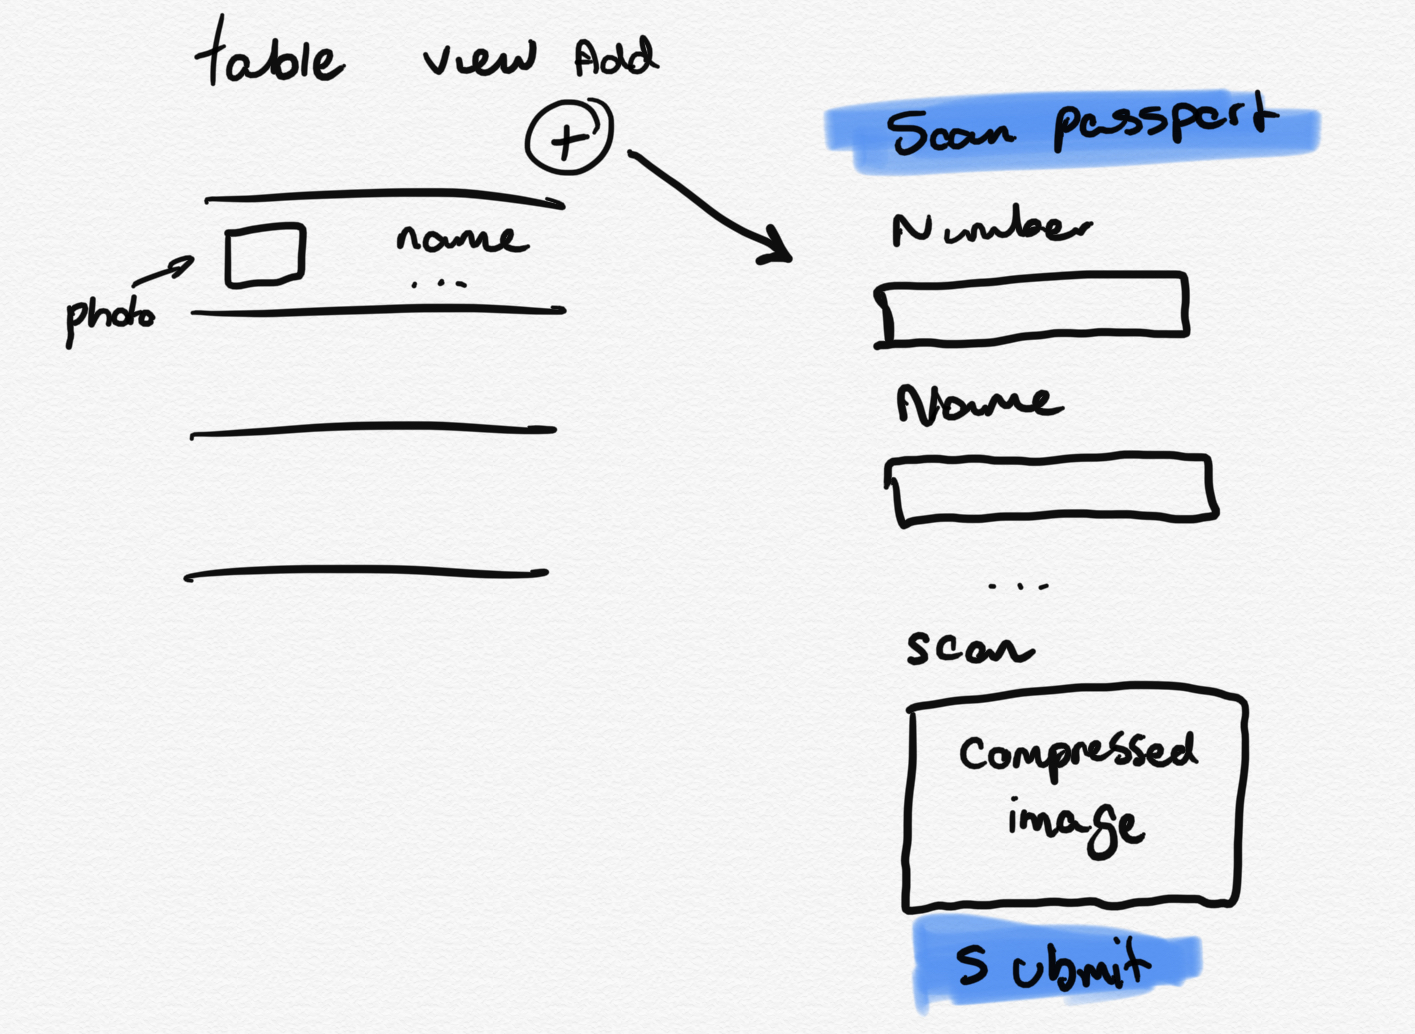 table view Add
+
name
...
photo
Scan passport
Number
Name
...
scan
Compressed
image
Submit